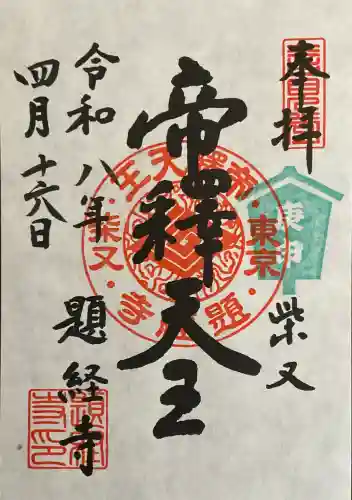 奉拝
柴又
庚申
帝釋天王
東京・柴又・帝釋天王・題経寺
令和八年
四月十六日
題経寺